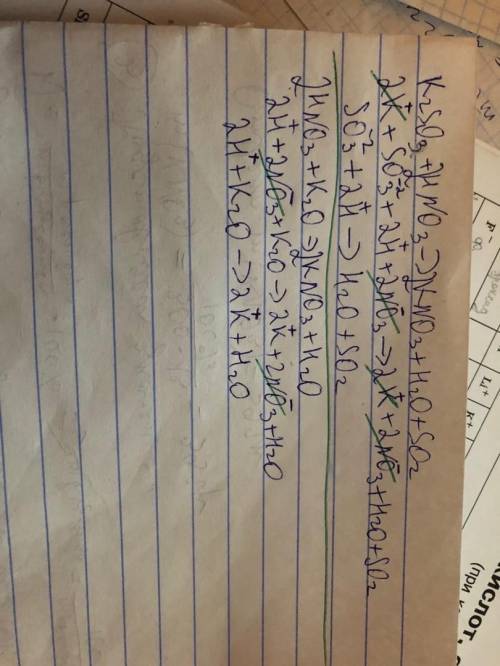 K2SO3 + 2HNO3 → 2KNO3 + H2O + SO2
2K⁺ + SO3⁻² + 2H⁺ + 2NO3⁻ → 2K⁺ + 2NO3⁻ + H2O + SO2
SO3⁻² + 2H⁺ → H2O + SO2
2HNO3 + K2O → 2KNO3 + H2O
2H⁺ + 2NO3⁻ + K2O → 2K⁺ + 2NO3⁻ + H2O
2H⁺ + K2O → 2K⁺ + H2O
F⁻
Li⁺
K⁺
(при к